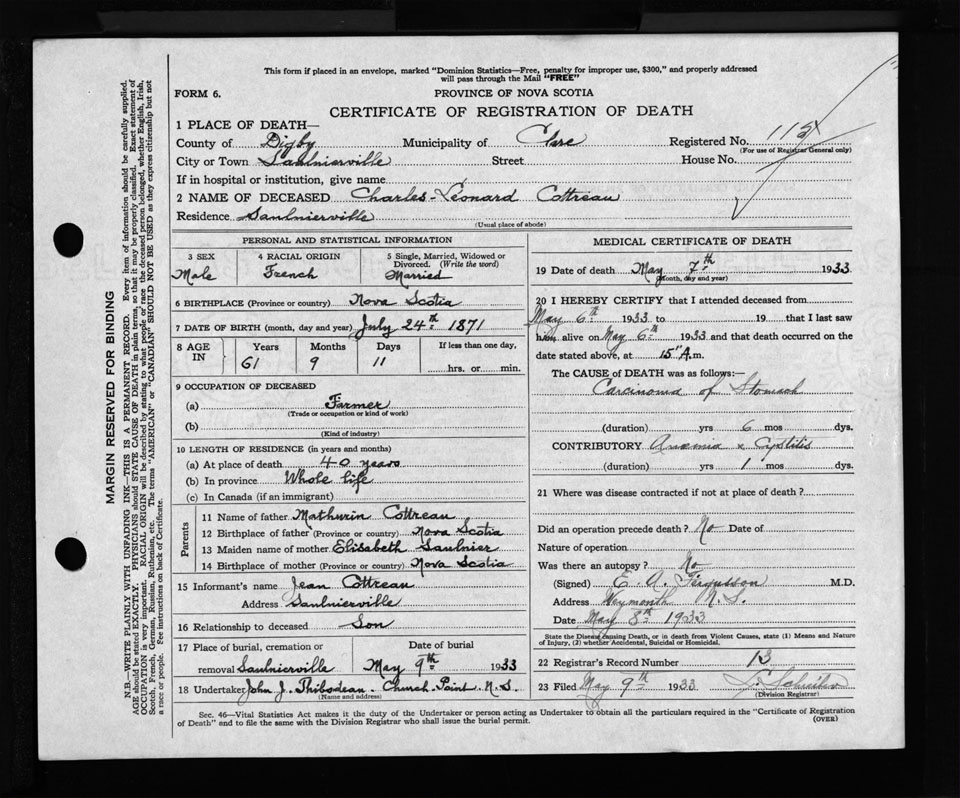 This form if placed in an envelope, marked "Dominion Statistics—Free, penalty for improper use, $300," and properly addressed
will pass through the Mail "FREE"
FORM 6. PROVINCE OF NOVA SCOTIA
CERTIFICATE OF REGISTRATION OF DEATH
1 PLACE OF DEATH—
County of Digby Municipality of Clare Registered No.
(For use of Registrar General only)
City or Town Saulnierville Street House No.
If in hospital or institution, give name
2 NAME OF DECEASED Charles-Léonard Cottreau
Residence Saulnierville
(Usual place of abode)
PERSONAL AND STATISTICAL INFORMATION
3 SEX 4 RACIAL ORIGIN 5 Single, Married, Widowed or
Divorced. (Write the word)
Male French Married
6 BIRTHPLACE (Province or country) Nova Scotia
7 DATE OF BIRTH (month, day and year) July 24th 1871
8 AGE IN Years Months Days If less than one day,
61 9 11 hrs. or min.
9 OCCUPATION OF DECEASED
(a) Farmer
(Trade or occupation or kind of work)
(b)
(Kind of industry)
10 LENGTH OF RESIDENCE (in years and months)
(a) At place of death 40 years
(b) In province Whole life
(c) In Canada (if an immigrant)
Parents
11 Name of father Mathurin Cottreau
12 Birthplace of father (Province or country) Nova Scotia
13 Maiden name of mother Elisabeth Saulnier
14 Birthplace of mother (Province or country) Nova Scotia
15 Informant's name Jean Cottreau
Address Saulnierville
16 Relationship to deceased Son
17 Place of burial, cremation or Date of burial
removal Saulnierville May 9th 1933
18 Undertaker John J. Thibodeau Church Point N.S.
(Name and address)
MEDICAL CERTIFICATE OF DEATH
19 Date of death May 7th 1933
(Month, day and year)
20 I HEREBY CERTIFY that I attended deceased from
May 6th 1933 to 19 that I last saw
him alive on May 6th 1933 and that death occurred on the
date stated above, at 15" A.m.
The CAUSE OF DEATH was as follows:—
Carcinoma of Stomach
(duration) yrs 6 mos dys.
CONTRIBUTORY Anemia & Cystitis
(duration) yrs 1 mos dys.
21 Where was disease contracted if not at place of death?
Did an operation precede death? No Date of
Nature of operation
Was there an autopsy? No
(Signed) E. A. Fergusson M.D.
Address Weymouth N.S.
Date May 8th 1933
State the Disease causing Death, or in death from Violent Causes, state (1) Means and Nature
of Injury, (2) whether Accidental, Suicidal or Homicidal.
22 Registrar's Record Number 13
23 Filed May 9th 1933
(Division Registrar)
Sec. 46—Vital Statistics Act makes it the duty of the Undertaker or person acting as Undertaker to obtain all the particulars required in the "Certificate of Registration
of Death" and to file the same with the Division Registrar who shall issue the burial permit. (OVER)
MARGIN RESERVED FOR BINDING
N.B.—WRITE PLAINLY WITH UNFADING INK—THIS IS A PERMANENT RECORD. Every item of information should be carefully supplied.
AGE should be stated EXACTLY. PHYSICIANS should STATE CAUSE OF DEATH in plain terms, so that it may be properly classified. Exact statement of
OCCUPATION is very important. RACIAL ORIGIN will be described by stating to what people or race the deceased person belonged, whether English, Irish,
Scotch, French, German, Russian, Ruthenian, etc. The terms "AMERICAN" or "CANADIAN" SHOULD NOT BE USED as they express citizenship but not
a race or people. See instructions on back of Certificate.